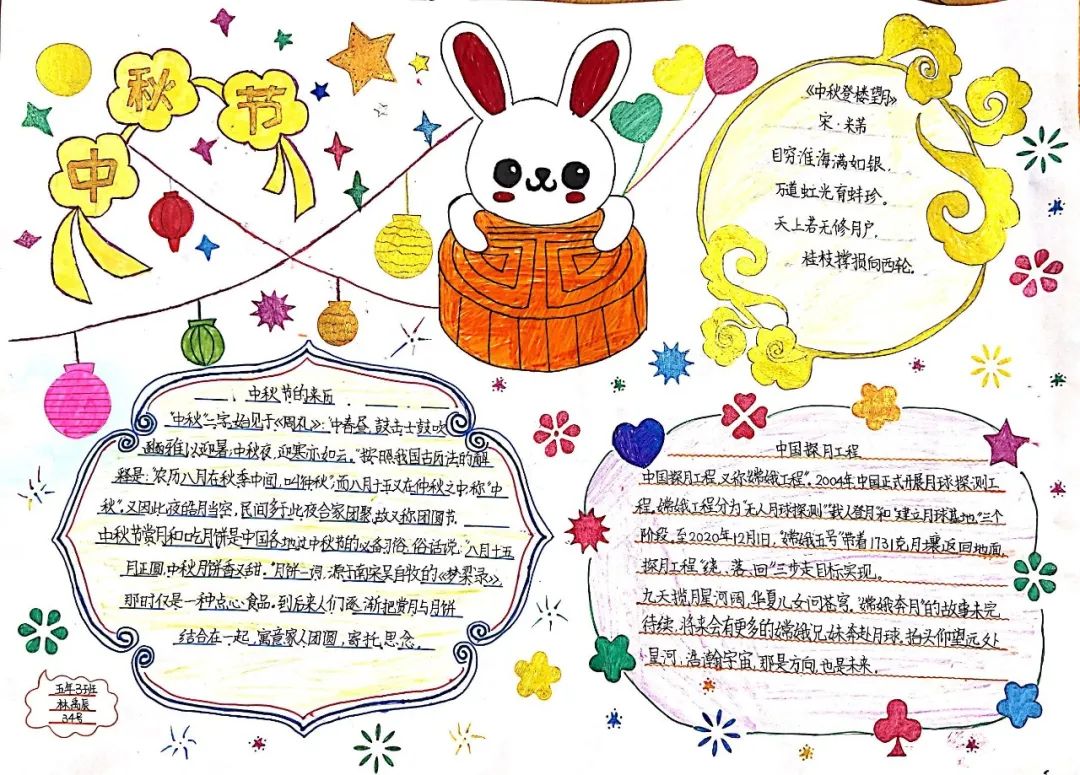 中秋节
《中秋登楼望月》
宋·米芾
目穷淮海满如银,
万道虹光育蚌珍。
天上若无修月户,
桂枝撑损向西轮.
中秋节的来历
“中秋”二字,始见于《周礼》:“中春昼,鼓击士鼓吹
豳雅以迎暑;中秋夜,迎寒亦如云。”按照我国古历法的解
释是:农历八月在秋季中间,叫“仲秋”,而八月十五又在仲秋之中,称“中
秋”,又因此夜皓月当空,民间多于此夜合家团聚,故又称团圆节.
中秋节赏月和吃月饼是中国各地过中秋节的必备习俗,俗话说:“八月十五
月正圆,中秋月饼香又甜.”月饼一词,源于南宋吴自牧的《梦梁录》,
那时仅是一种点心食品.到后来人们逐渐把赏月与月饼
结合在一起,寓意家人团圆,寄托思念.
中国探月工程
中国探月工程,又称“嫦娥工程”.2004年,中国正式开展月球探测工
程,嫦娥工程分为“无人月球探测”“载人登月”和“建立月球基地”三个
阶段.至2020年12月1日,“嫦娥五号”带着1731克月壤返回地面,
探月工程“绕、落、回”三步走目标实现。
九天揽月星河阔,华夏儿女问苍穹,“嫦娥奔月”的故事未完
待续,将来会有更多的嫦娥兄妹奔赴月球,抬头仰望远处
星河,浩瀚宇宙,那是方向,也是未来.
五年3班
林禹辰
34号